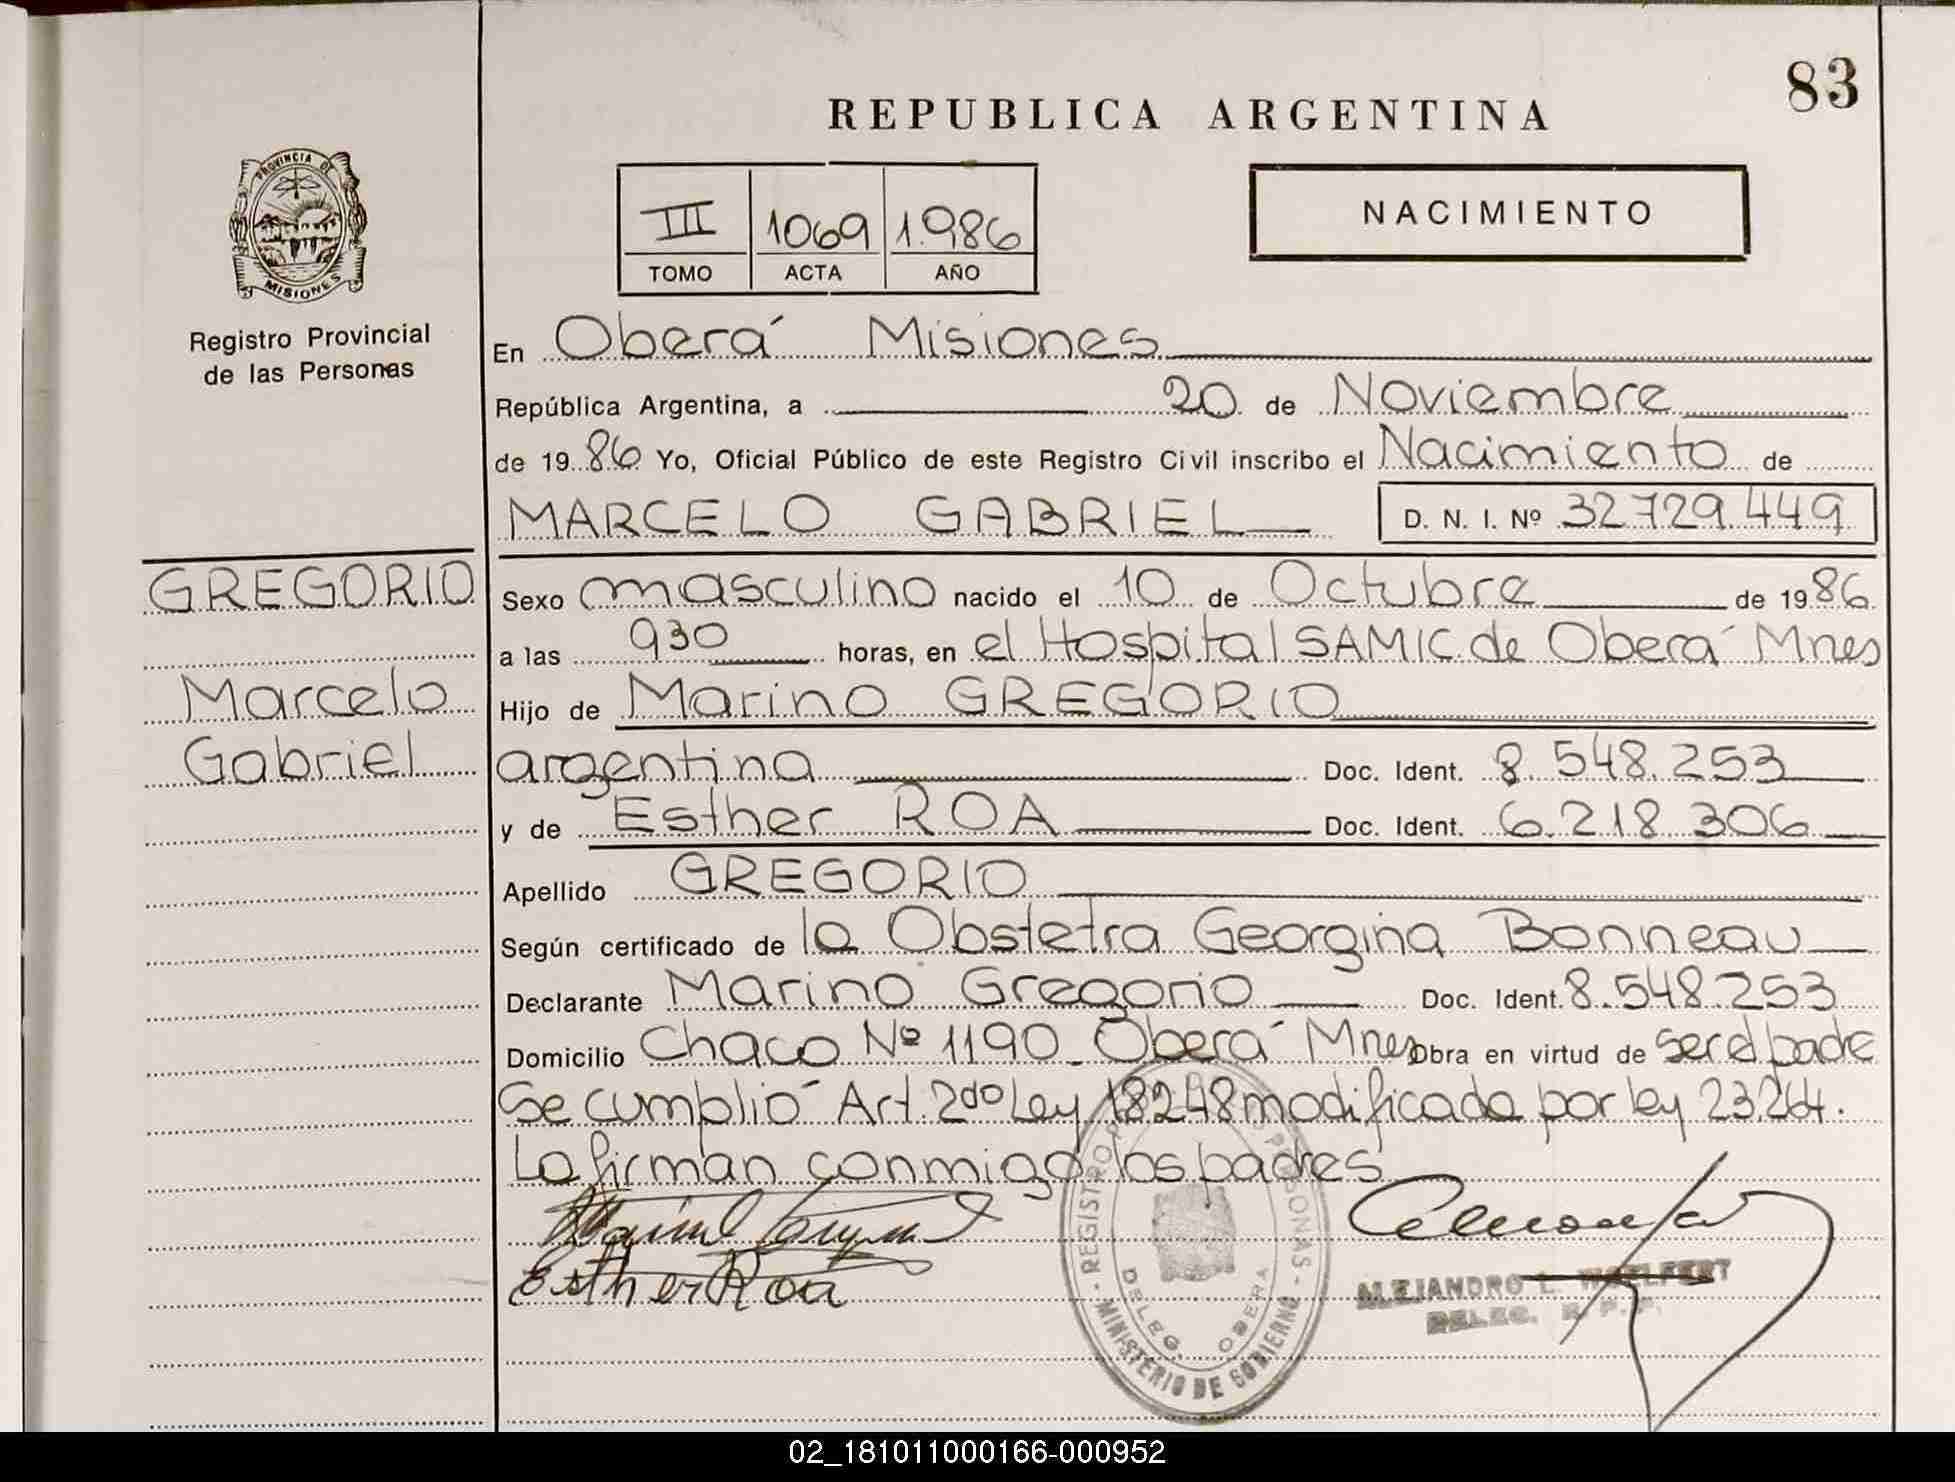 83
REPUBLICA ARGENTINA
PROVINCIA DE
MISIONES
Registro Provincial
de las Personas
III 1069 1.986
TOMO ACTA AÑO
NACIMIENTO
En Oberá Misiones
República Argentina, a 20 de Noviembre
de 19 86 Yo, Oficial Público de este Registro Civil inscribo el Nacimiento de
MARCELO GABRIEL D. N. I. Nº 32.729.449
GREGORIO
Marcelo
Gabriel
Sexo masculino nacido el 10 de Octubre de 19 86
a las 930 horas, en el Hospital SAMIC de Oberá Mnes
Hijo de Marino GREGORIO
argentina Doc. Ident. 8.548.253
y de Esther ROA Doc. Ident. 6.218.306
Apellido GREGORIO
Según certificado de la Obstetra Georgina Bonneau
Declarante Marino Gregorio Doc. Ident. 8.548.253
Domicilio Chaco Nº 1190 Oberá Mnes Obra en virtud de ser el padre
Se cumplió Art. 2do Ley 18248 modificada por ley 23.264.
La firman conmigo los padres
Esther Roa
REGISTRO PERSONAS
DELEG. OBERA
MINISTERIO DE GOBIERNO
ALEJANDRO L. WOELFERT
DELEG. R. P. P.
02_181011000166-000952